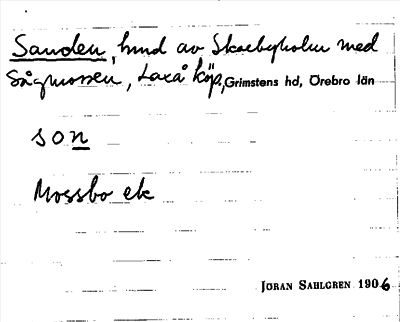 Sanden, hmd av Skoebyholm med
Sågmossen, Laxå köp, Grimstens hd, Örebro län
son
Mossbo ek
JÖRAN SAHLGREN 1906